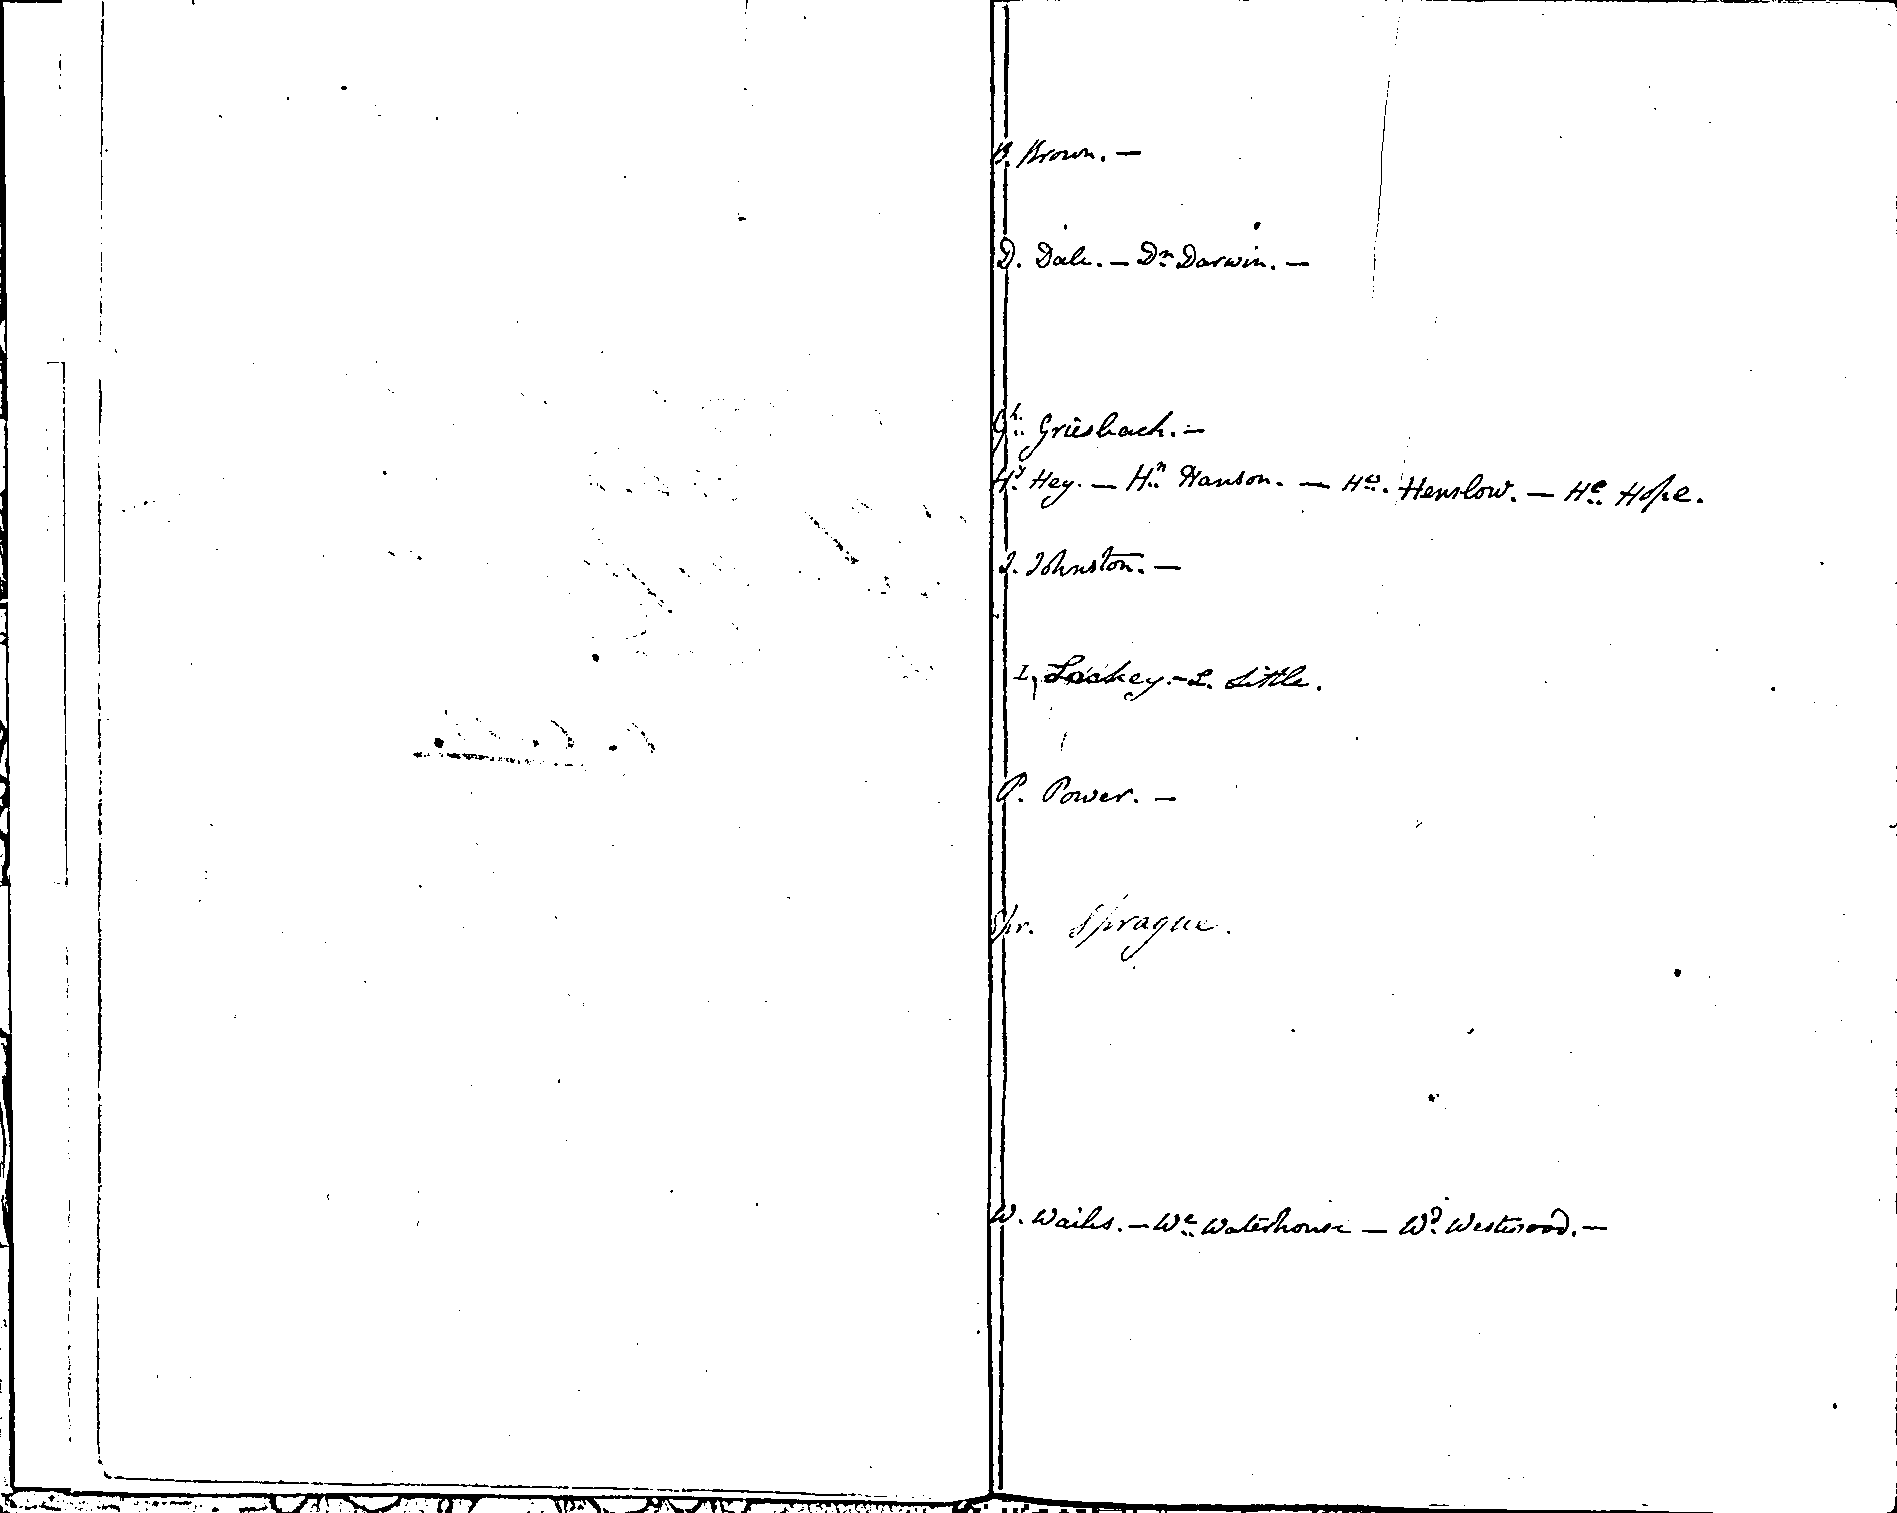 B. Brown. —
D. Dale. — Dn Darwin. —
Gh. Griesbach. —
Hy Hey. — Hn Hanson. — Hw. Henslow. — He Hope.
J. Johnston. —
L, Lackey. — L. Little.
P. Power. —
Spr. Sprague.
W. Wailes. — We Waterhouse — Wd Westwood. —